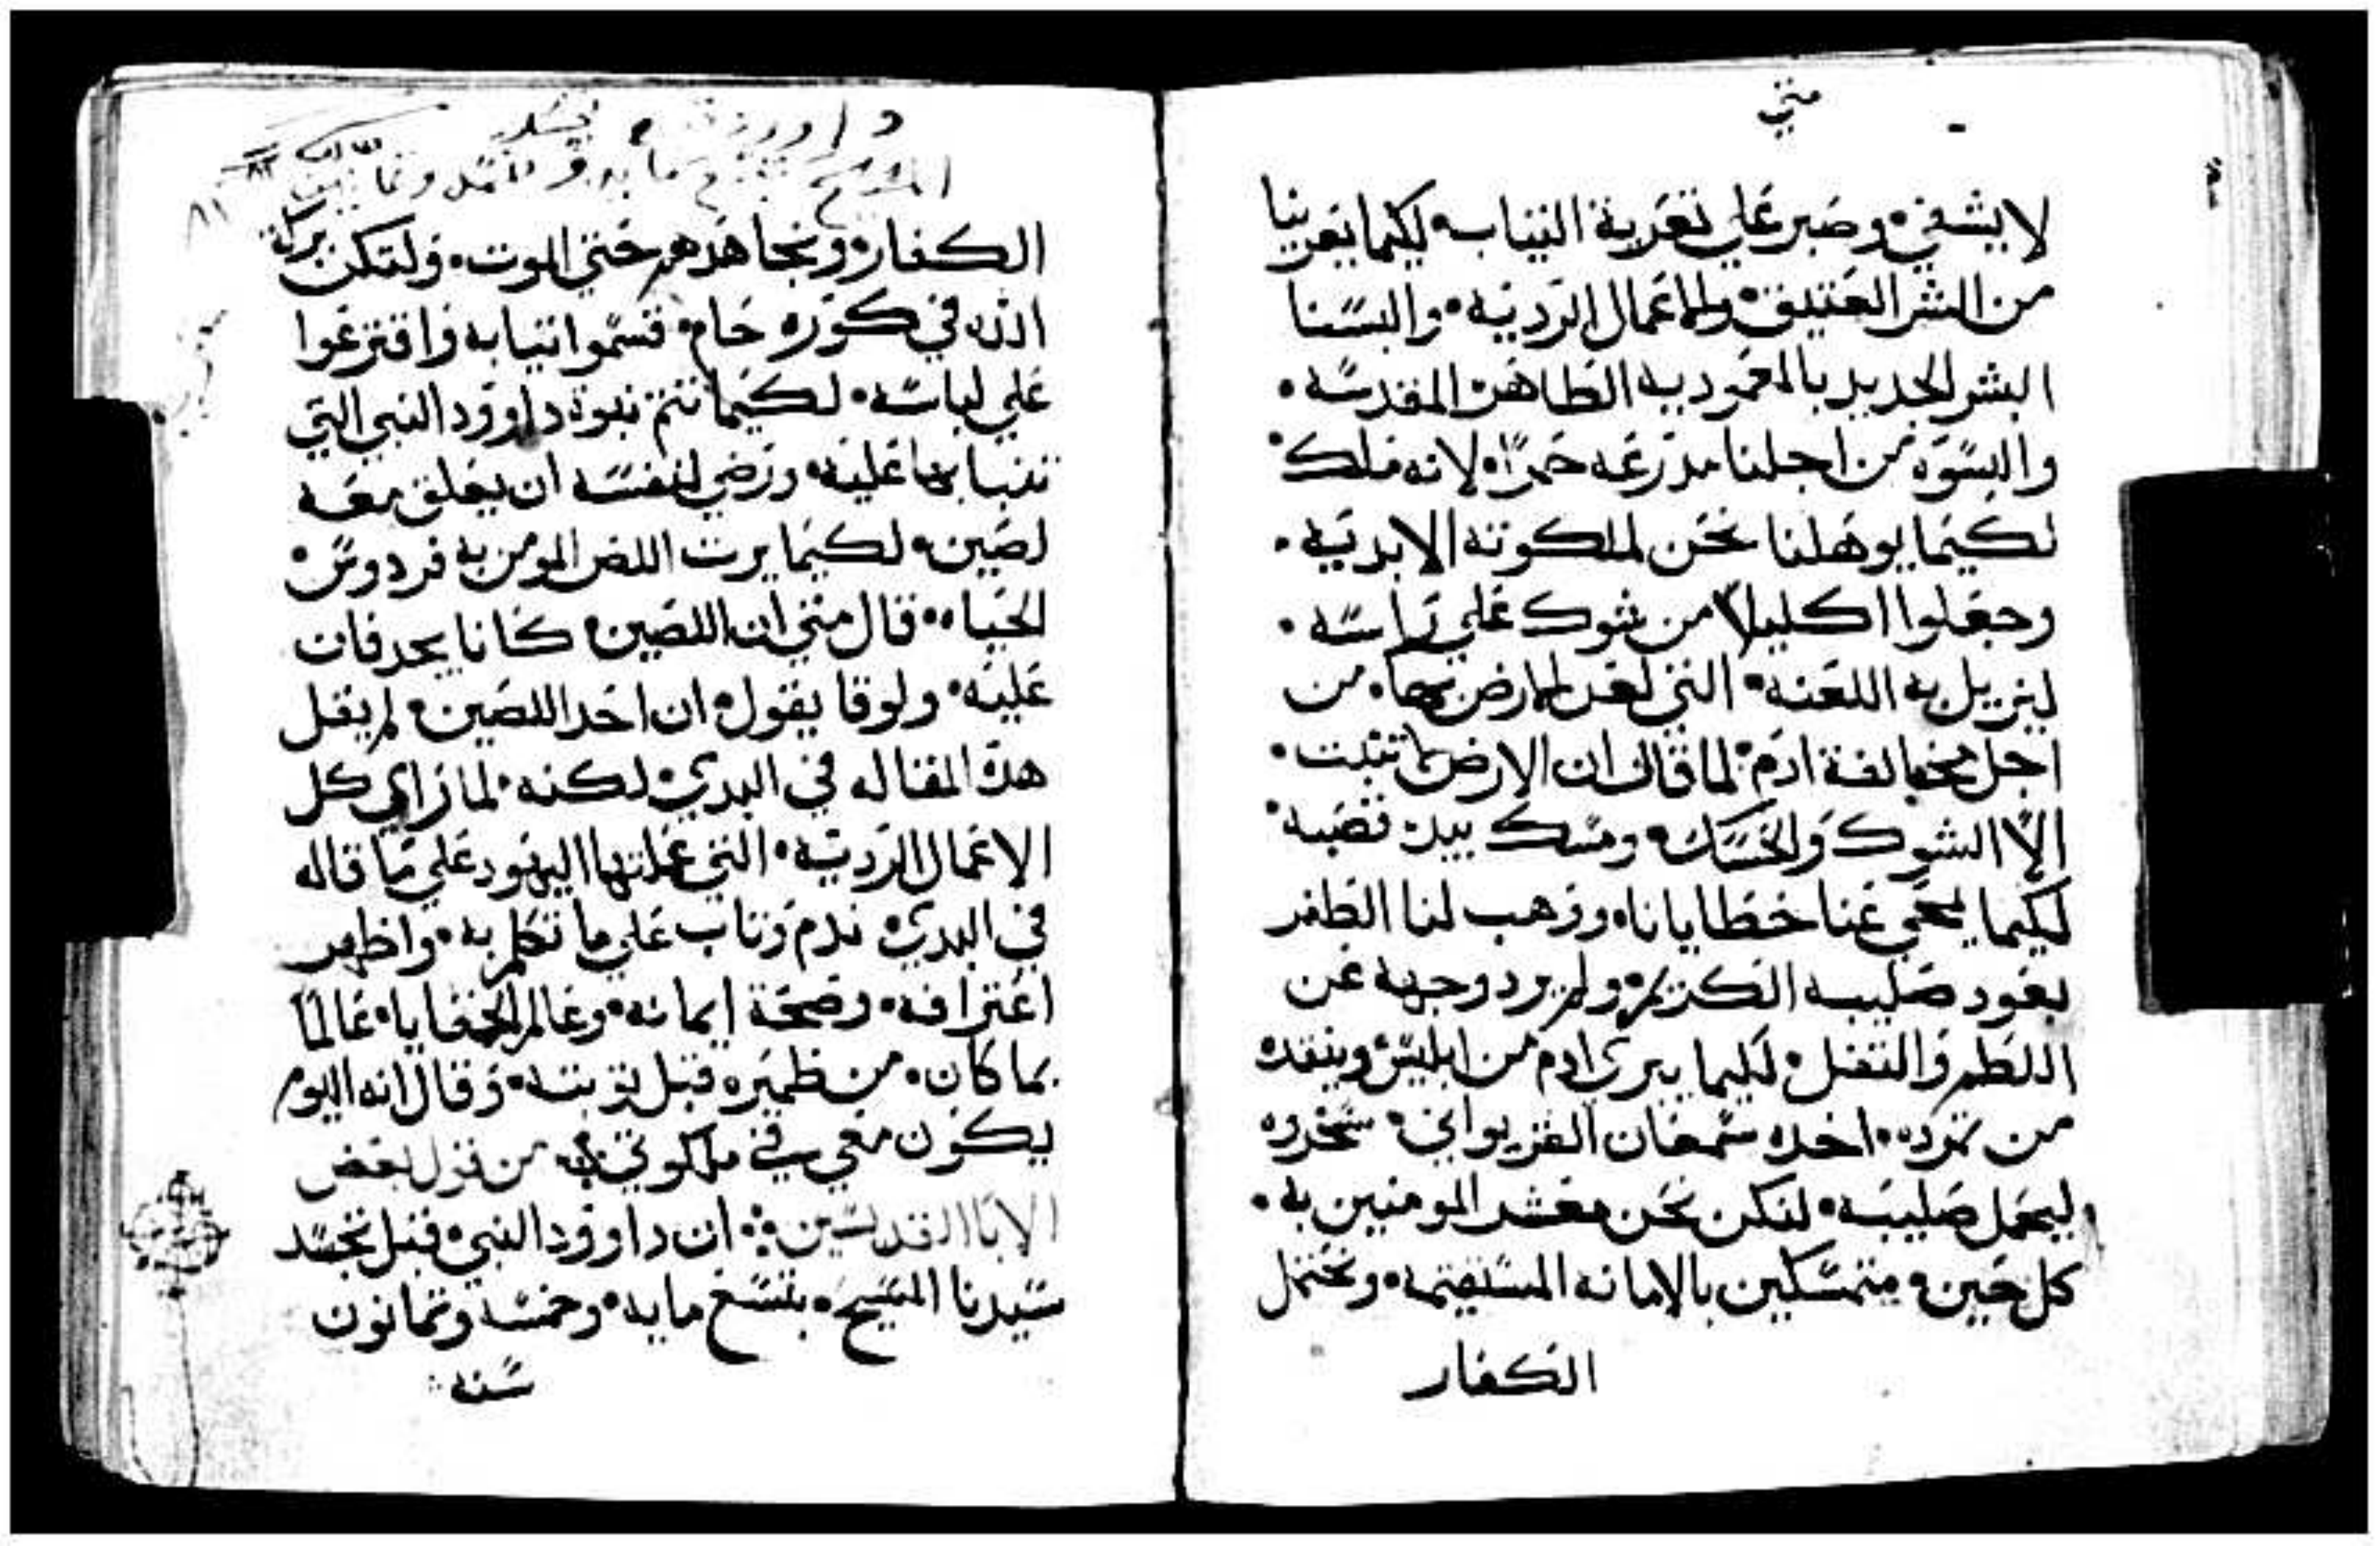 متي
لا يشفي وصبر علي تعرية التياب لكيما يعرينا
من الشر العتيق والاعمال الرديه والبسنا
البشر الجديد بالمعموديه الطاهره المقدسه
والبسوه من اجلنا مدرعه حمرا لانه ملك
لكيما يوهلنا نحن لملكوته الابديه
وجعلوا اكليلا من شوك علي راسه
ليزيل به اللعنه التي لعن الارض بها من
اجل مخالفة ادم لما قال ان الارض ما تنبت
الا الشوك والحسك ومسك بيده قصبه
لكيما يمحي عنا خطايانا ووهب لنا الظفر
بعود صليبه الكريم ولم يرد وجهه عن
اللطم والتفل لكيما يبري ادم من ابليس وينقده
من تمرده اخده سمعان القريواني سخروه
ليحمل صليبه لنكن نحن معشر المومنين به
كل حين متمسكين بالامانه المستقيمه ونحتمل
الكفار
داوود
المسيح بتسع مايه و
الكفار ونجاهدهم حتي الموت ولتكن بركة
الله في كوره حام قسموا تيابه واقترعوا
علي لباسه لكيما تتم نبوة داوود النبي التي
تنبا بها عليه ورضي لنفسه ان يعلق معه
لصين لكيما يرت اللص المومن به فردوس
الحياه قال متي ان اللصين كانا يجدفان
عليه ولوقا يقول ان احد اللصين لم يقل
هذه المقاله في البدي لكنه لما راي كل
الاعمال الرديه التي عملتها اليهود علي ما قاله
في البدي ندم وتاب علي ما تكلم به واظهر
اعترافه وصحة ايمانه وعالم الخفايا عالما
بما كان من ظميره قبل توبته وقال انه اليوم
يكون معي في ملكوتي من قول بعض
الابا القديسين ان داوود النبي قبل تجسد
سيدنا المسيح بتسع مايه وخمسه وتمانون
سنه